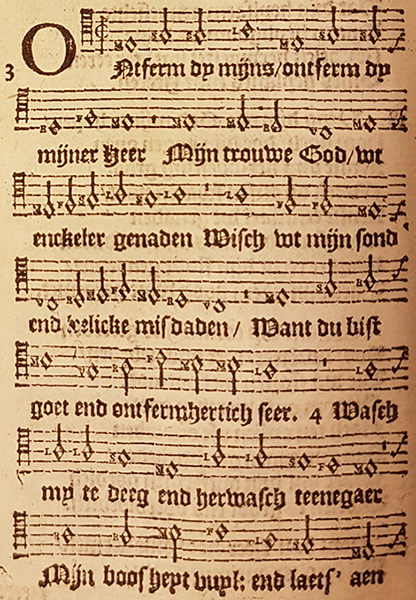 3 ONtferm dy mijns/ontferm dy
mijner Heer Mijn trouwe God/wt
enckeler genaden Wisch wt mijn sond
end leelicke misdaden/ Want du bist
goet end ontfermhertich seer. 4 Wasch
my te deeg end herwasch teenegaer
Mijn boosheyt vuyl: end laets' aen